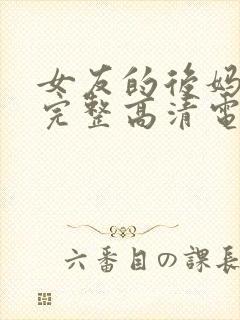 女友的后妈
完整高清電
六番目の課長